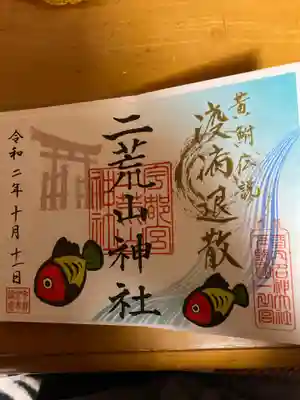 黄鮒伝説
疫病退散
二荒山神社
宇都宮
令和二年十月十一日